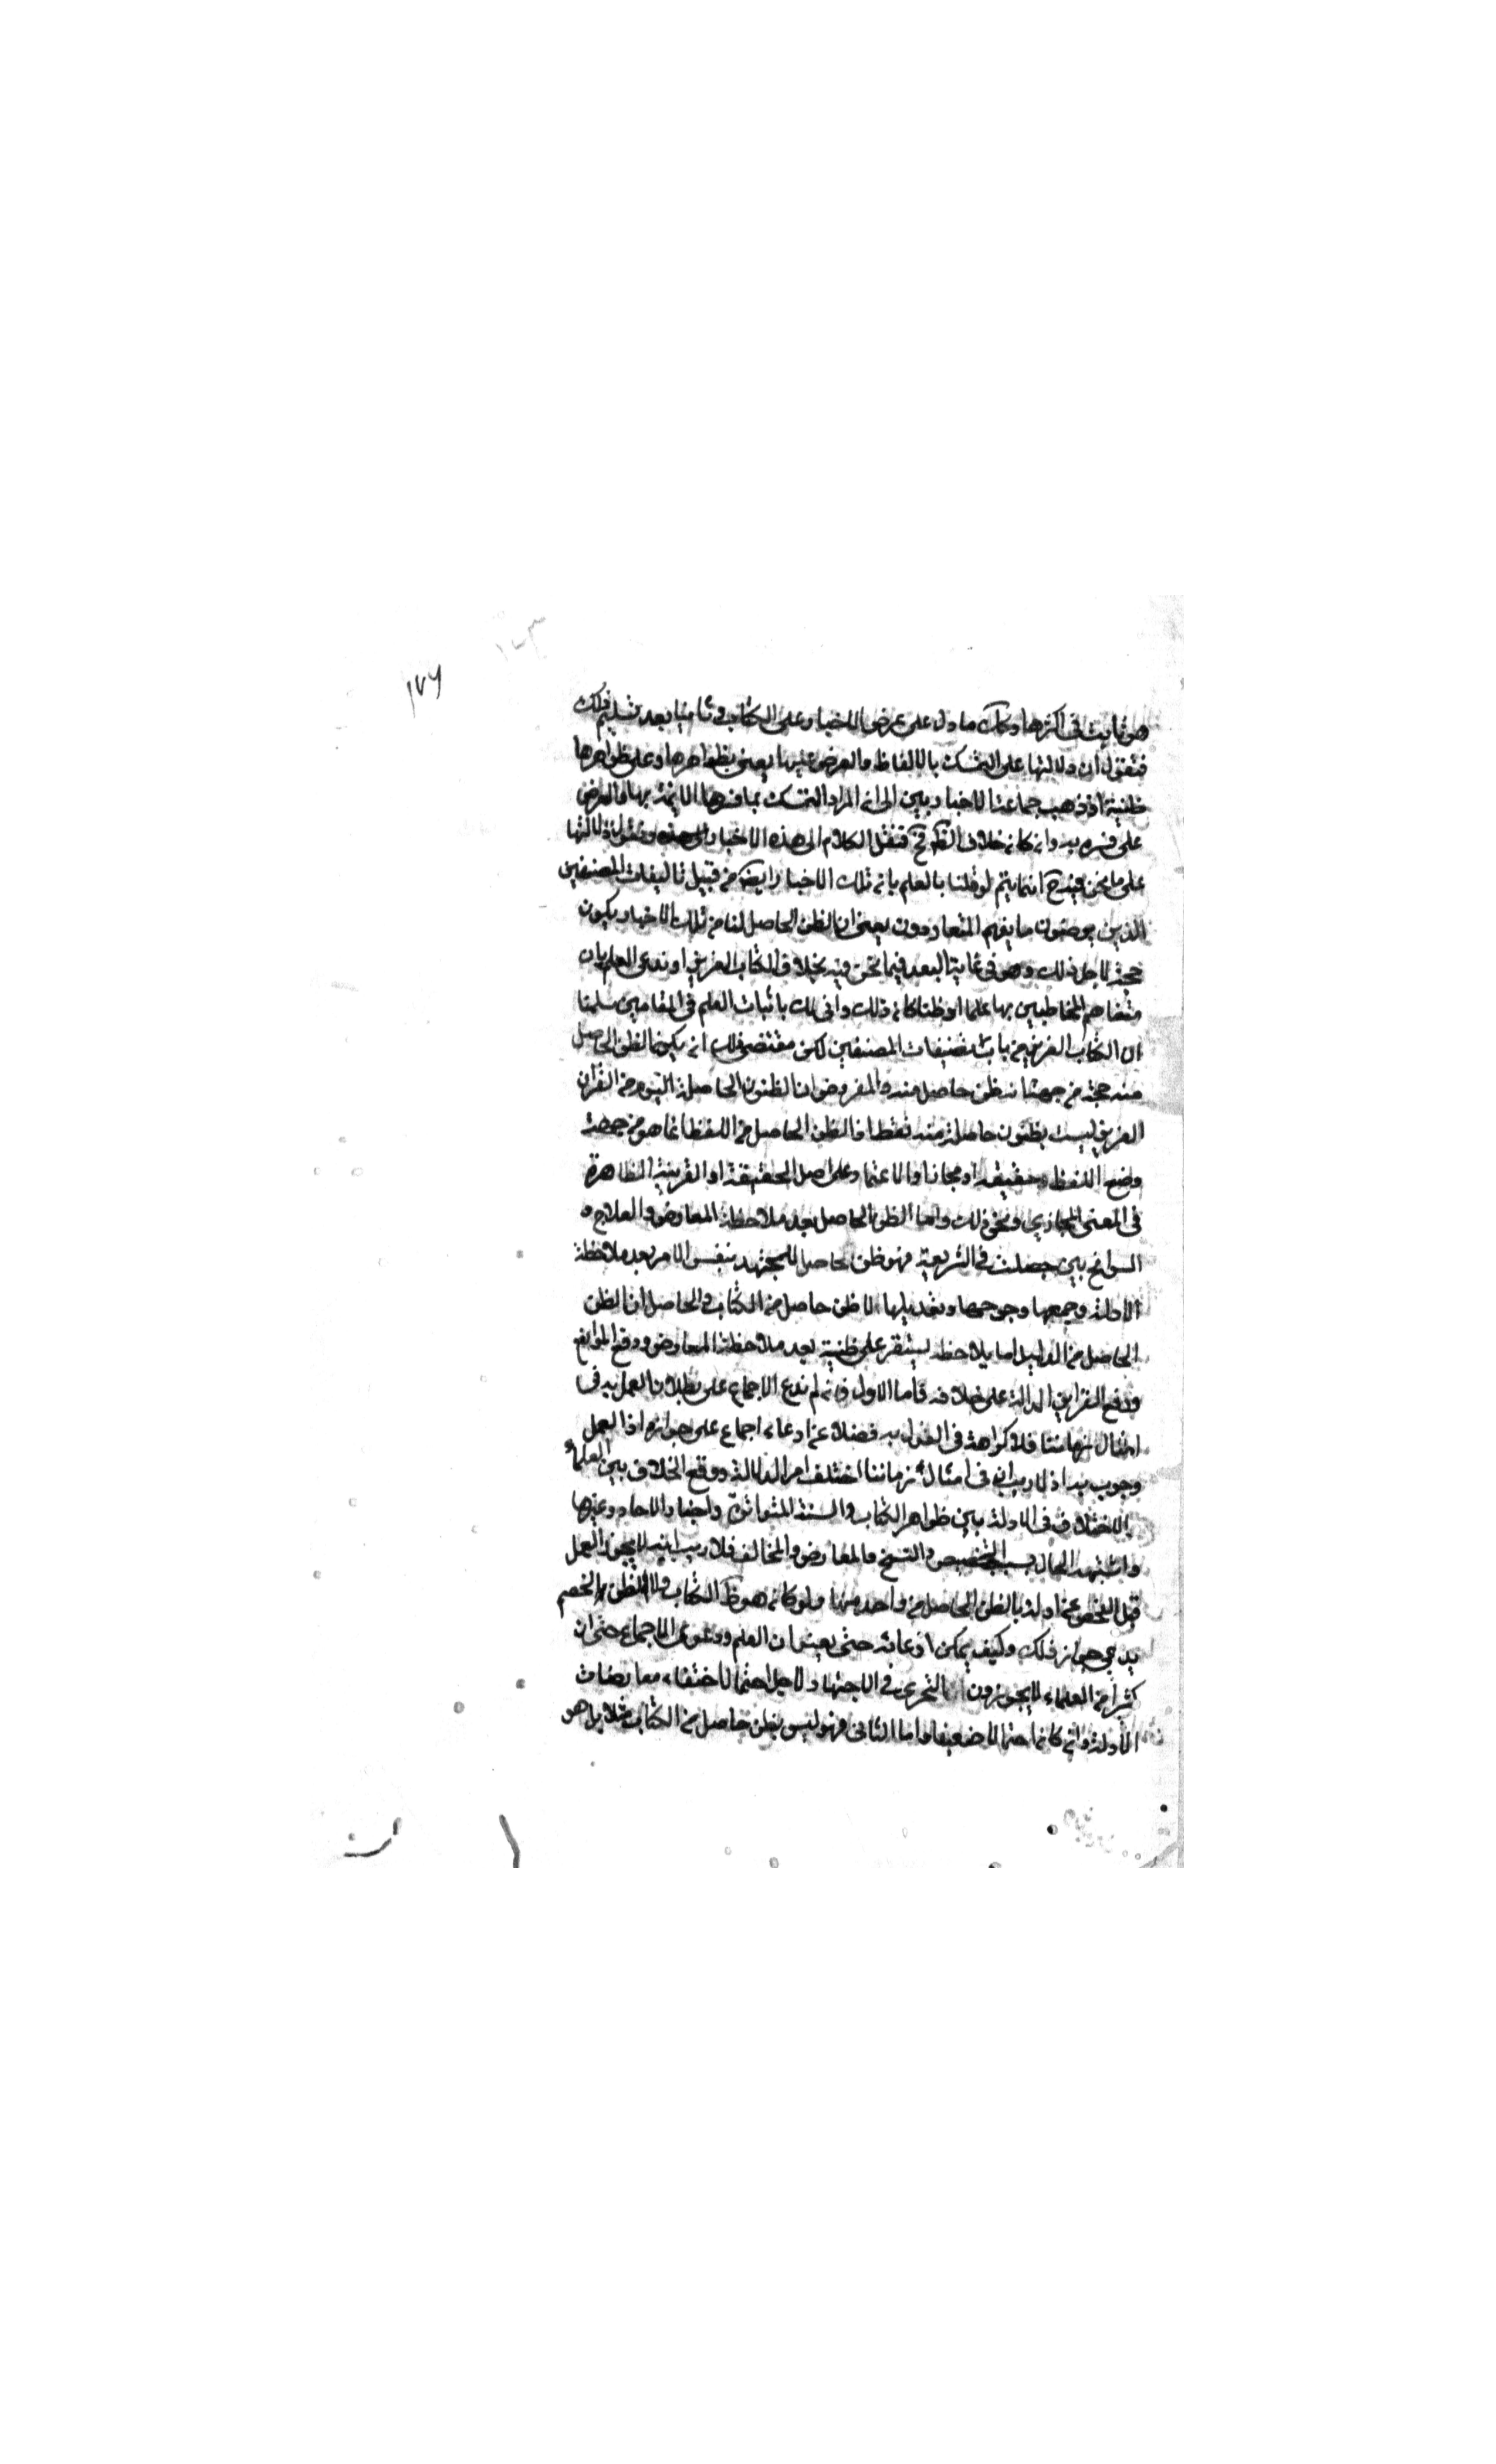 ١٧٦
هو ثابت فى اكثرها وكك ما دل على عرض الاخبار على الكتاب وثانيا بعد تسليم ذلك
فنقول ان دلالتها على التمسك بالالفاظ والعرض عليها يعنى بظواهرها وعلى ظواهرها
ظنية اذ ذهب جماعة الاخباريين الى ان المراد التمسك بما فسرها الائمة بها والعرض
على ما فسره به وان كان خلاف الظ وح فننقل الكلام الى هذه الاخبار ونقول دلالتها
على ما نحن فيه ح انما يتم لو قلنا بالعلم بان تلك الاخبار ايض من قبيل تاليفات المصنفين
الذين يرضون ما يفهم المتعارفون يعنى ان الظن الحاصل لنا من تلك الاخبار يكون
حجة لاجل ذلك وهو فى غاية البعد فيما نحن فيه بخلاف الكتاب العزيز او ندعى العلم بان
متفاهم المخاطبين بها علما او ظنا كان ذلك وانى لك باثبات العلم فى المقامين سلمنا
ان الكتاب العزيز من باب تصنيفات المصنفين لكن مقتضى ذلك ان يكون الظن الحاصل
منه حجة من جهة انه ظن حاصل منه والمفروض ان الظنون الحاصلة اليوم من القران
العزيز ليست بظنون حاصلة منه فقط اذ الظن الحاصل من اللفظ انما هو من جهة
وضع اللفظ حقيقة او مجازا والاعتماد على اصل الحقيقة او القرينة الظاهرة
فى المعنى المجازى ونحو ذلك واما الظن الحاصل بعد ملاحظة المعارض والعلاج و
السوانح بين حصلت فى الشريعة فهو ظن حاصل للمجتهد بنفس الامر بعد ملاحظة
الادلة وجمعها وجرحها وتعديلها لا ظن حاصل من الكتاب والحاصل ان الظن
الحاصل من الدليل اما يلاحظ ليستقر على ظنية بعد ملاحظة المعارض ودفع الموانع
ودفع القراين الدالة على خلافه فاما الاول فان لم ندع الاجماع على بطلان العمل به فى
امثال زماننا فلا كراهة فى القول به فضلا عن ادعاء اجماع على جوازه اذ العمل
وجوب به اذ لا ريب ان فى امثال زماننا اختلف امر الدلالة ووقع الخلاف بين العلماء
بالاختلاف فى الادلة بين ظواهر الكتاب والسنة المتواترة واخبار الاحاد وغيرها
واشتبه الحال بسبب التخصيص والنسخ والمعارض والمخالف فلا ريب انه لا يجوز العمل
قبل الفحص عن ادلة بالظن الحاصل من واحد منها ولو كان هو ظ الكتاب ولا الظن والخصم
يدعى جواز ذلك وكيف يمكن ادعائه حتى يعين ان العلم ودعوى الاجماع حتى ان
كثيرا من العلماء لا يجوزون التجزى فى الاجتهاد لاجل احتمال اختفاء معارضات
الادلة وان كان احتمالا ضعيفا واما الثانى فهو ليس بظن حاصل من الكتاب مثلا بل هو